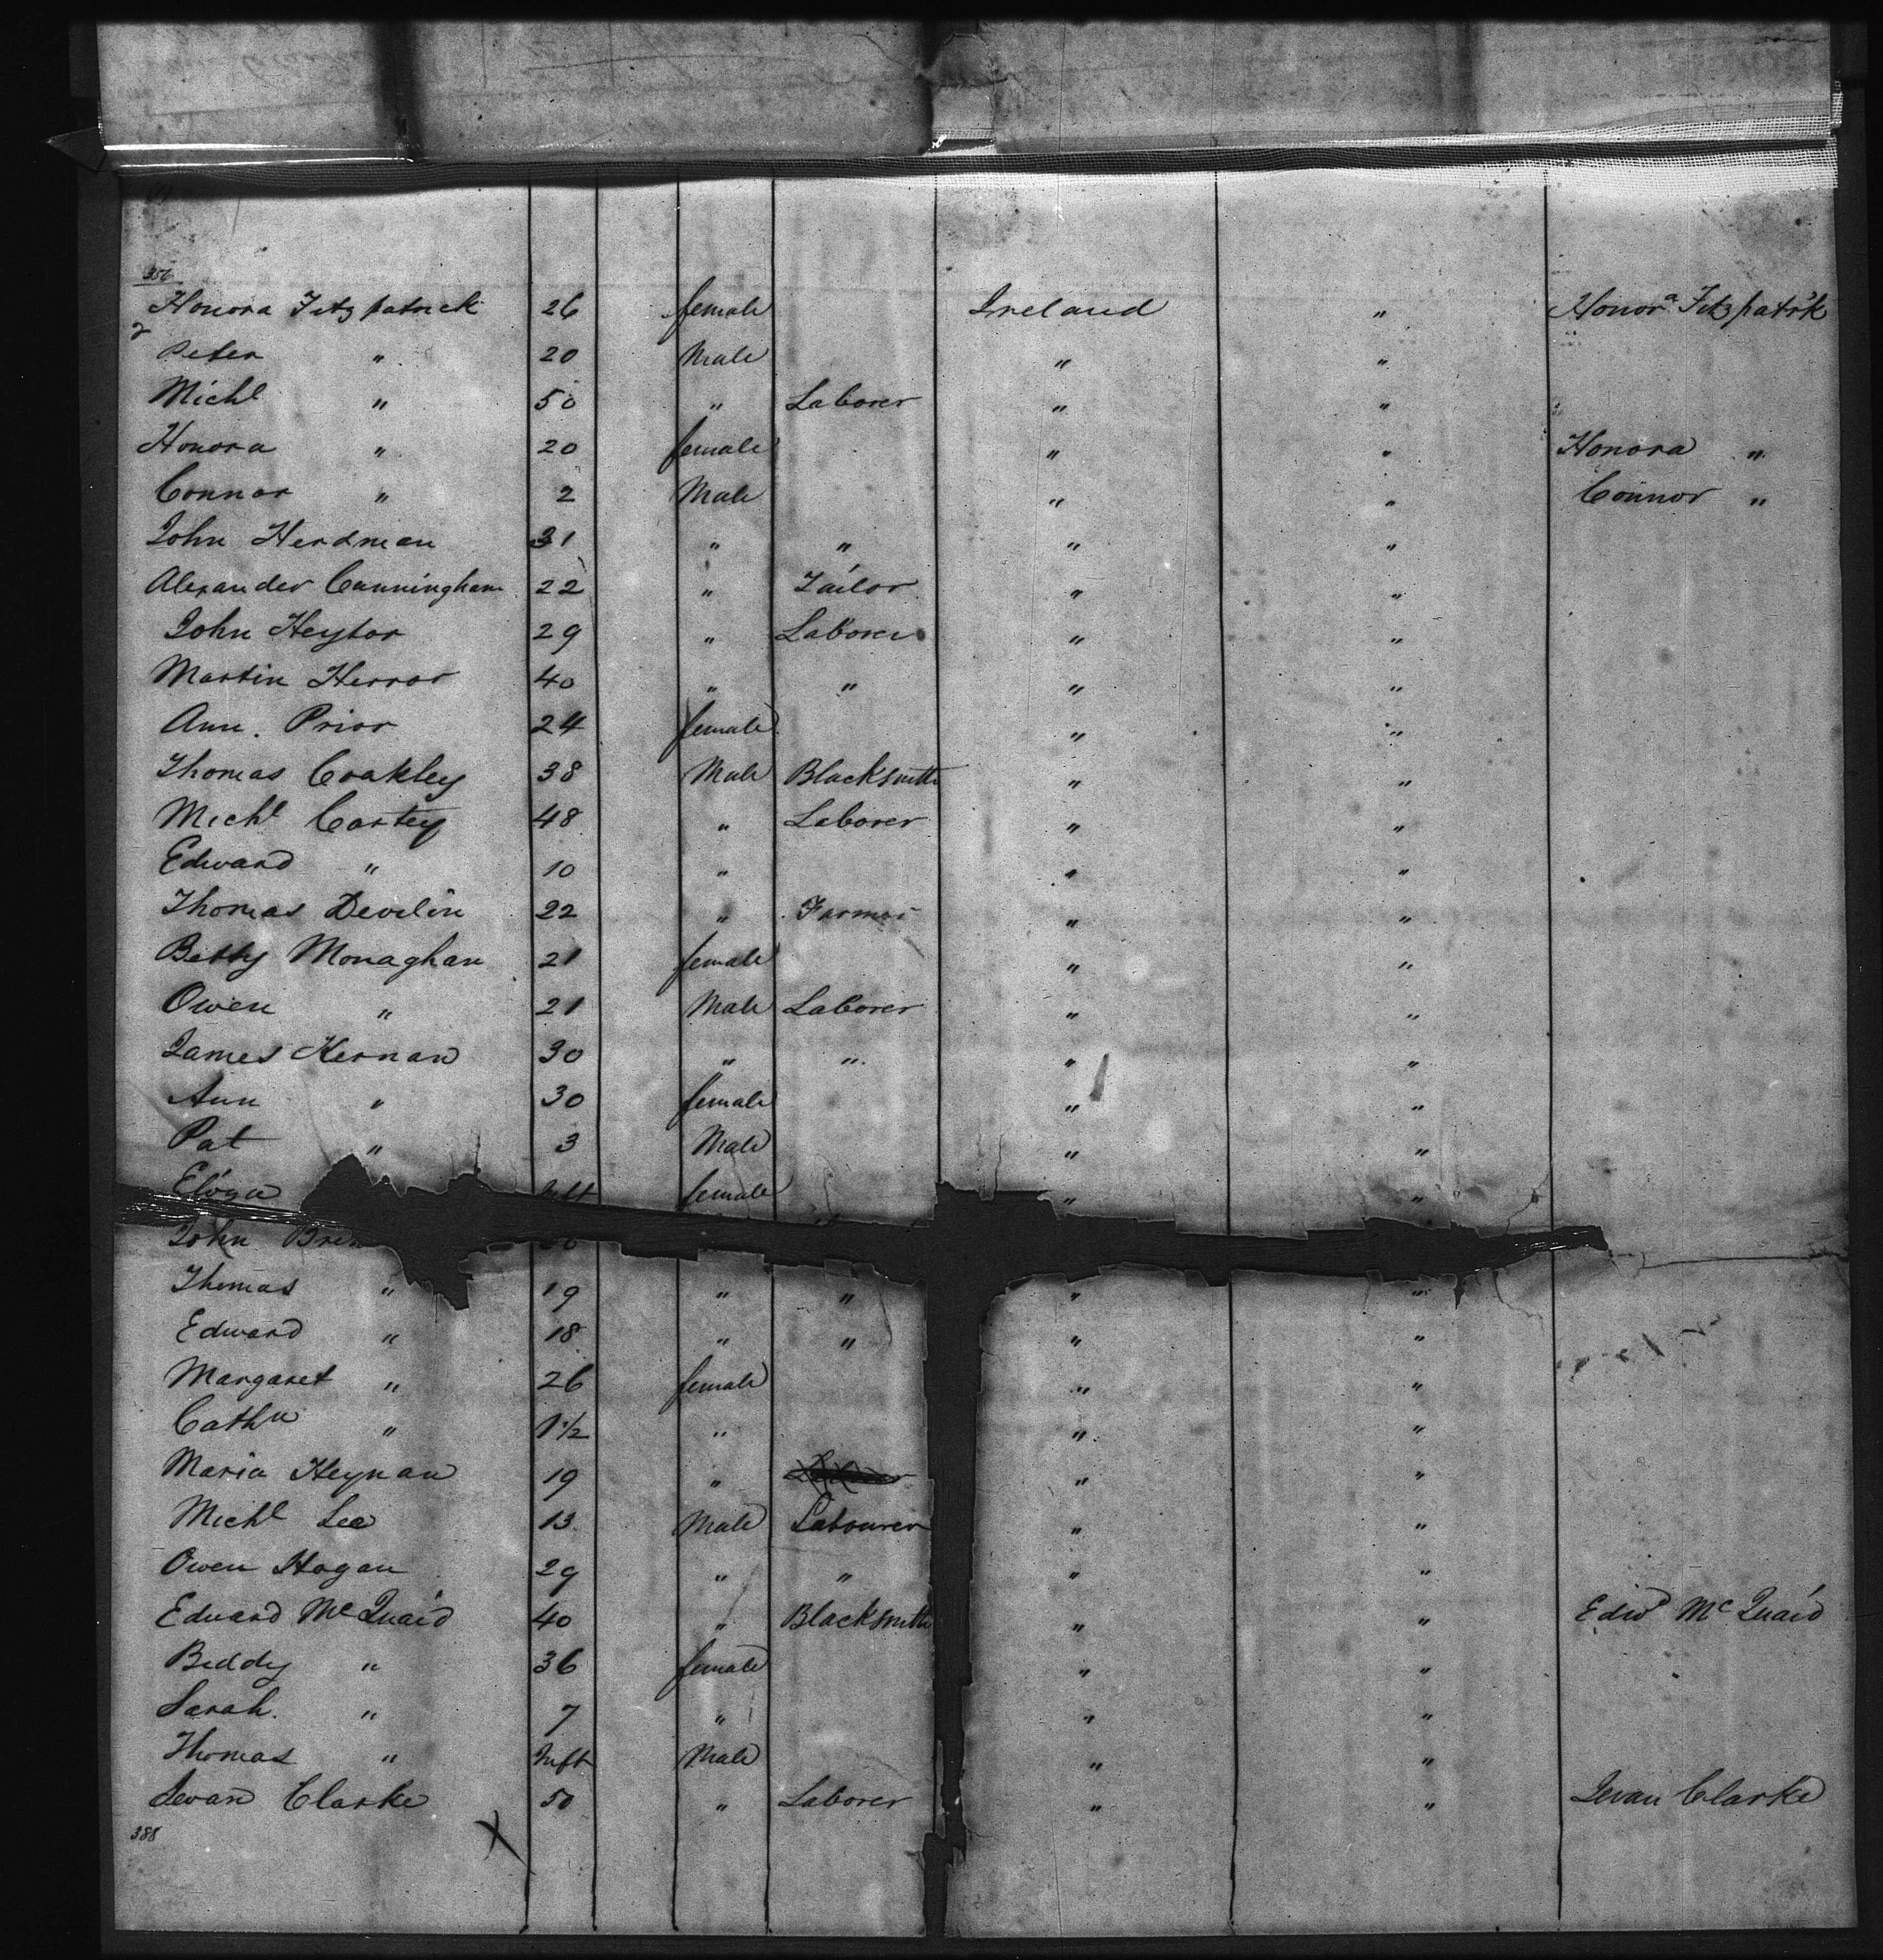 356
Honora Fitzpatrick 26 female Ireland " Honorª Fitzpatrk
Peter " 20 Male " "
Michl " 50 " Laborer " "
Honora " 20 female " " Honora "
Connor " 2 Male " " Connor "
John Herdman 31 " " " "
Alexander Cunningham 22 " Tailor " "
John Heytor 29 " Laborer " "
Martin Herror 40 " " " "
Ann. Prior 24 female " "
Thomas Coakley 38 Male Blacksmith " "
Michl Cartey 48 " Laborer " "
Edward " 10 " " "
Thomas Develin 22 " Farmer " "
Betty Monaghan 21 female " "
Owen " 21 Male Laborer " "
James Kernan 30 " " " "
Ann " 30 female " "
Pat " 3 Male " "
Eliza Inft female " "
John
Thomas " 19 " " " "
Edward " 18 " " " "
Margaret " 26 female " "
Cathn " 1½ " " "
Maria Heynan 19 " " "
Michl Lea 13 Male Labourer " "
Owen Hagan 29 " " " "
Edward McQuaid 40 " Blacksmith " " Edwd McQuaid
Biddy " 36 female " "
Sarah. " 7 " " "
Thomas " Inft Male " "
Levan Clarke 50 " Laborer " " Levan Clarke
388 X